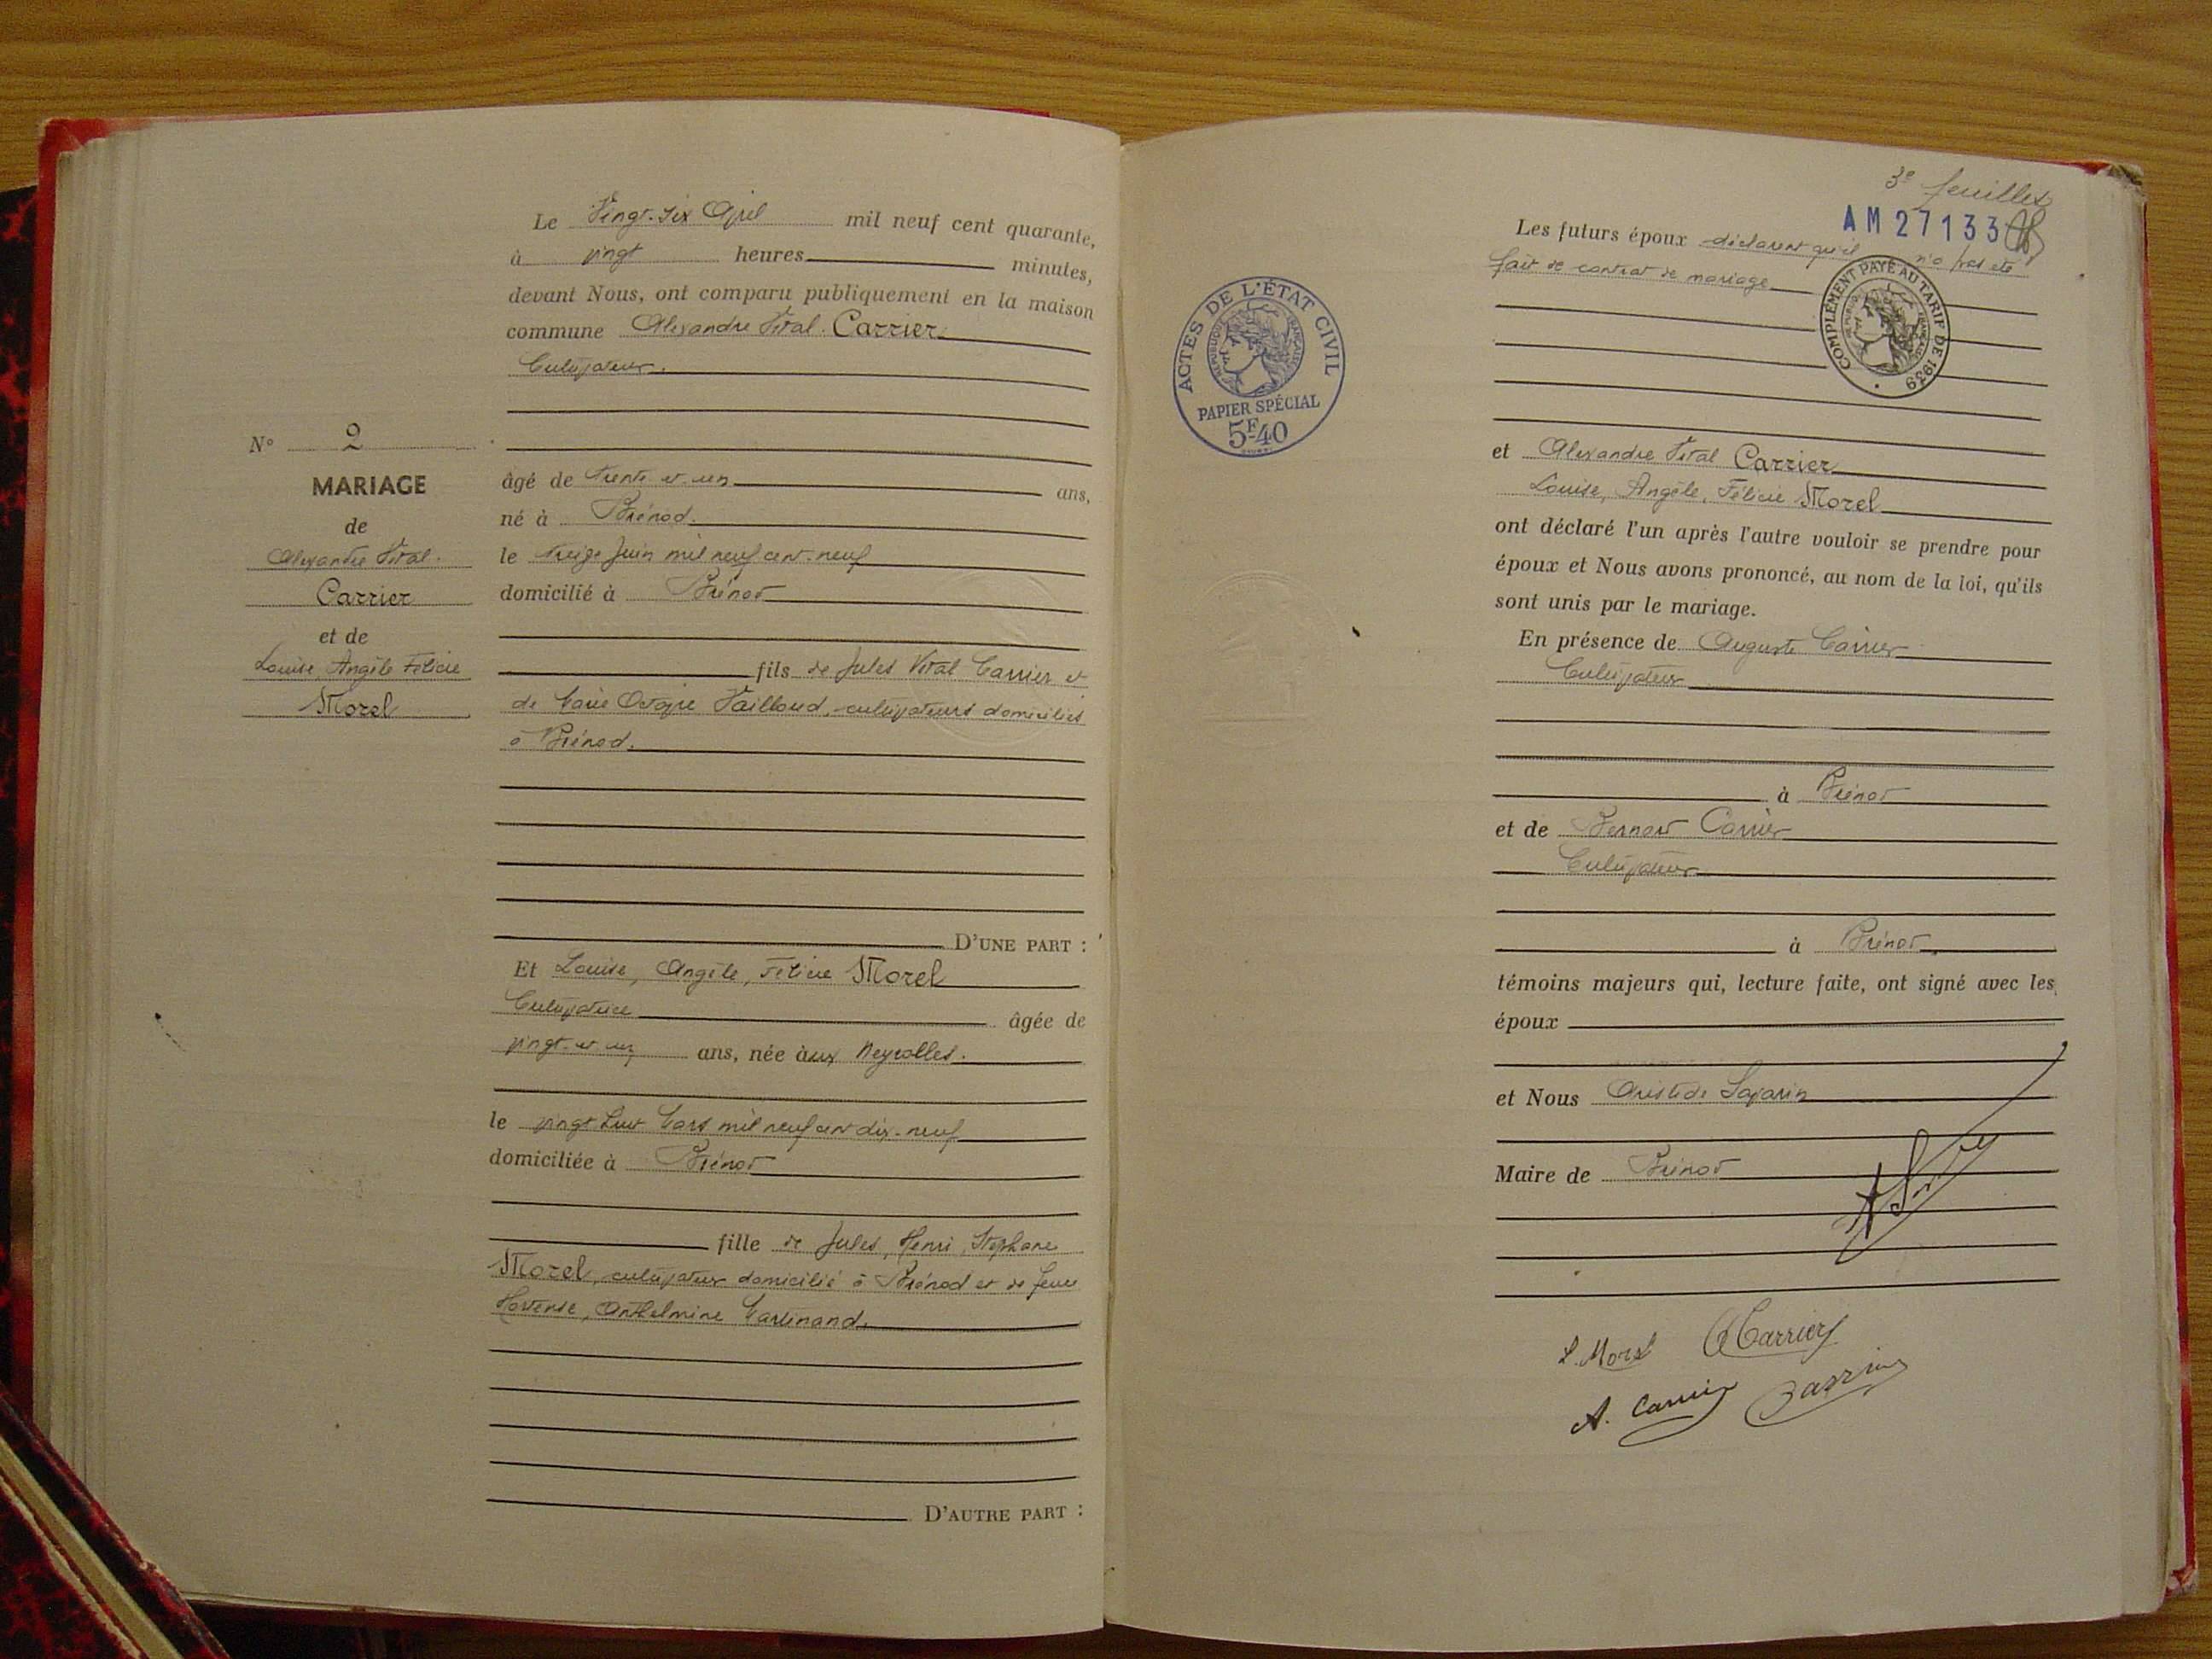 Le Vingt-six Avril mil neuf cent quarante,
à vingt heures minutes,
devant Nous, ont comparu publiquement en la maison
commune Alexandre Vital Carrier
Cultivateur.
N° 2
MARIAGE
de
Alexandre Vital
Carrier
et de
Louise, Angèle Félicie
Morel
âgé de trente et un ans,
né à Brénod.
le treize Juin mil neuf cent neuf
domicilié à Brénod
fils de Jules Vital Carrier et
de Marie Octavie Vailloud, cultivateurs domiciliés
à Brénod.
D'UNE PART :
Et Louise, Angèle, Félicie Morel
Cultivatrice âgée de
vingt et un ans, née aux Neyrolles.
le vingt huit Mars mil neuf cent dix-neuf
domiciliée à Brénod
fille de Jules, Henri, Stéphane
Morel, cultivateur domicilié à Brénod et de feue
Hortense, Anthelmine Martinand.
D'AUTRE PART :
ACTES DE L'ÉTAT CIVIL
RÉPUBLIQUE FRANÇAISE
PAPIER SPÉCIAL
5F40
3e feuillet
AM 27133
Les futurs époux déclarent qu'il n'a pas été
fait de contrat de mariage
COMPLÉMENT PAYÉ AU TARIF DE 1939
RÉPUBLIQUE FRANÇAISE
et Alexandre Vital Carrier
Louise, Angèle, Félicie Morel
ont déclaré l'un après l'autre vouloir se prendre pour
époux et Nous avons prononcé, au nom de la loi, qu'ils
sont unis par le mariage.
En présence de Auguste Carrier
Cultivateur
à Brénod
et de Bernard Carrier
Cultivateur
à Brénod
témoins majeurs qui, lecture faite, ont signé avec les
époux
et Nous Aristide Savarin
Maire de Brénod
L. Morel Carrier
A. Carrier Carrier